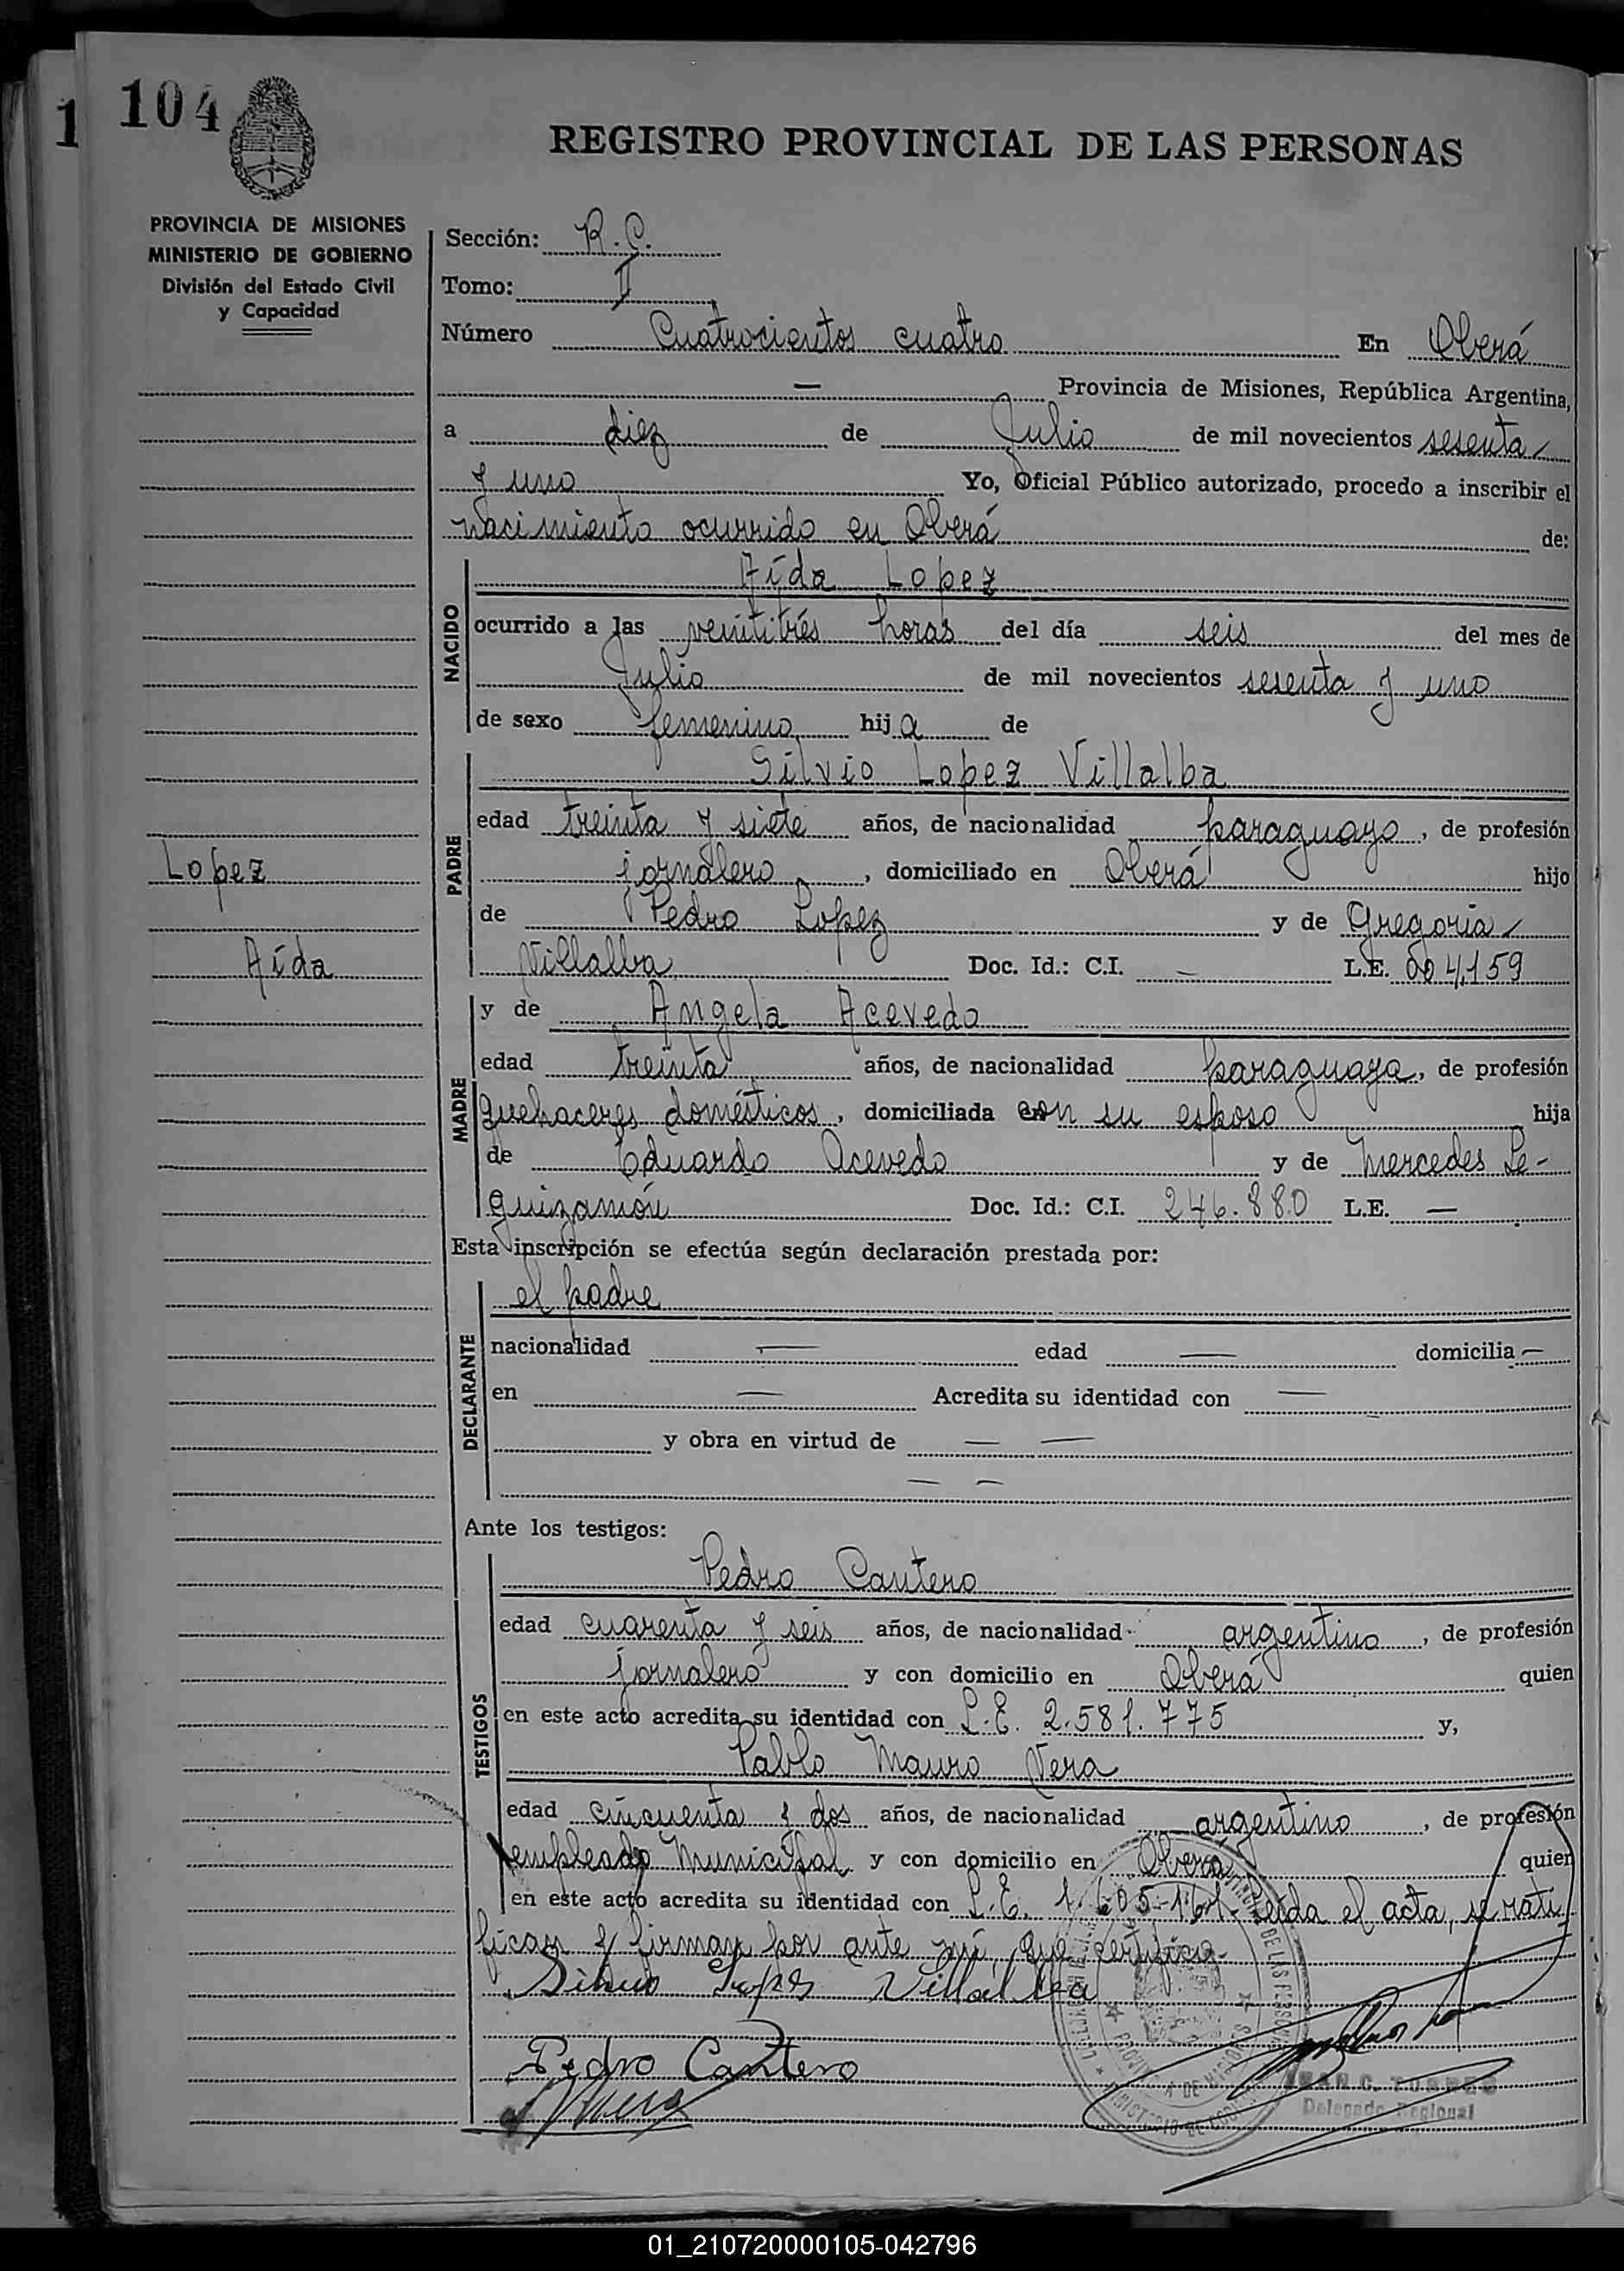 1
104
REGISTRO PROVINCIAL DE LAS PERSONAS
PROVINCIA DE MISIONES
MINISTERIO DE GOBIERNO
División del Estado Civil
y Capacidad
Lopez
Aída
Sección: R.C.
Tomo: II
Número Cuatrocientos cuatro En Oberá
— Provincia de Misiones, República Argentina,
a diez de Julio de mil novecientos sesenta
y uno Yo, Oficial Público autorizado, procedo a inscribir el
nacimiento ocurrido en Oberá de:
NACIDO
Aída Lopez
ocurrido a las veintitrés horas del día seis del mes de
Julio de mil novecientos sesenta y uno
de sexo femenino hija de
PADRE
Silvio Lopez Villalba
edad treinta y siete años, de nacionalidad paraguayo, de profesión
jornalero, domiciliado en Oberá hijo
de Pedro Lopez y de Gregoria
Villalba Doc. Id.: C.I. — L.E. 004,159
MADRE
y de Angela Acevedo
edad treinta años, de nacionalidad paraguaya, de profesión
quehaceres domésticos, domiciliada con su esposo hija
de Eduardo Acevedo y de Mercedes Le-
guizamón Doc. Id.: C.I. 246.880 L.E. —
Esta inscripción se efectúa según declaración prestada por:
DECLARANTE
el padre
nacionalidad — edad — domicilia —
en — Acredita su identidad con —
y obra en virtud de — —
— —
Ante los testigos:
TESTIGOS
Pedro Cantero
edad cuarenta y seis años, de nacionalidad argentino, de profesión
jornalero y con domicilio en Oberá quien
en este acto acredita su identidad con L.E. 2.581.775 y,
Pablo Mauro Vera
edad cincuenta y dos años, de nacionalidad argentino, de profesión
empleado Municipal y con domicilio en Oberá quien
en este acto acredita su identidad con L.E. 1.605-161- Leída el acta, se rati
fican y firman por ante mí, que certifico-
Silvio Lopez Villalba
Pedro Cantero
Vera
JUAN C. TORRES
Delegado Regional
01_210720000105-042796